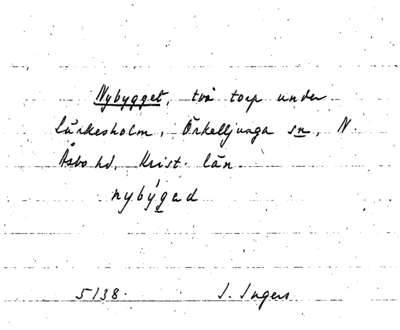 Nybygget, två torp under
Lärkesholm, Örkelljunga sn, N.
Åsbo hd, Krist. län.
nybýgad
5138. I. Ingers